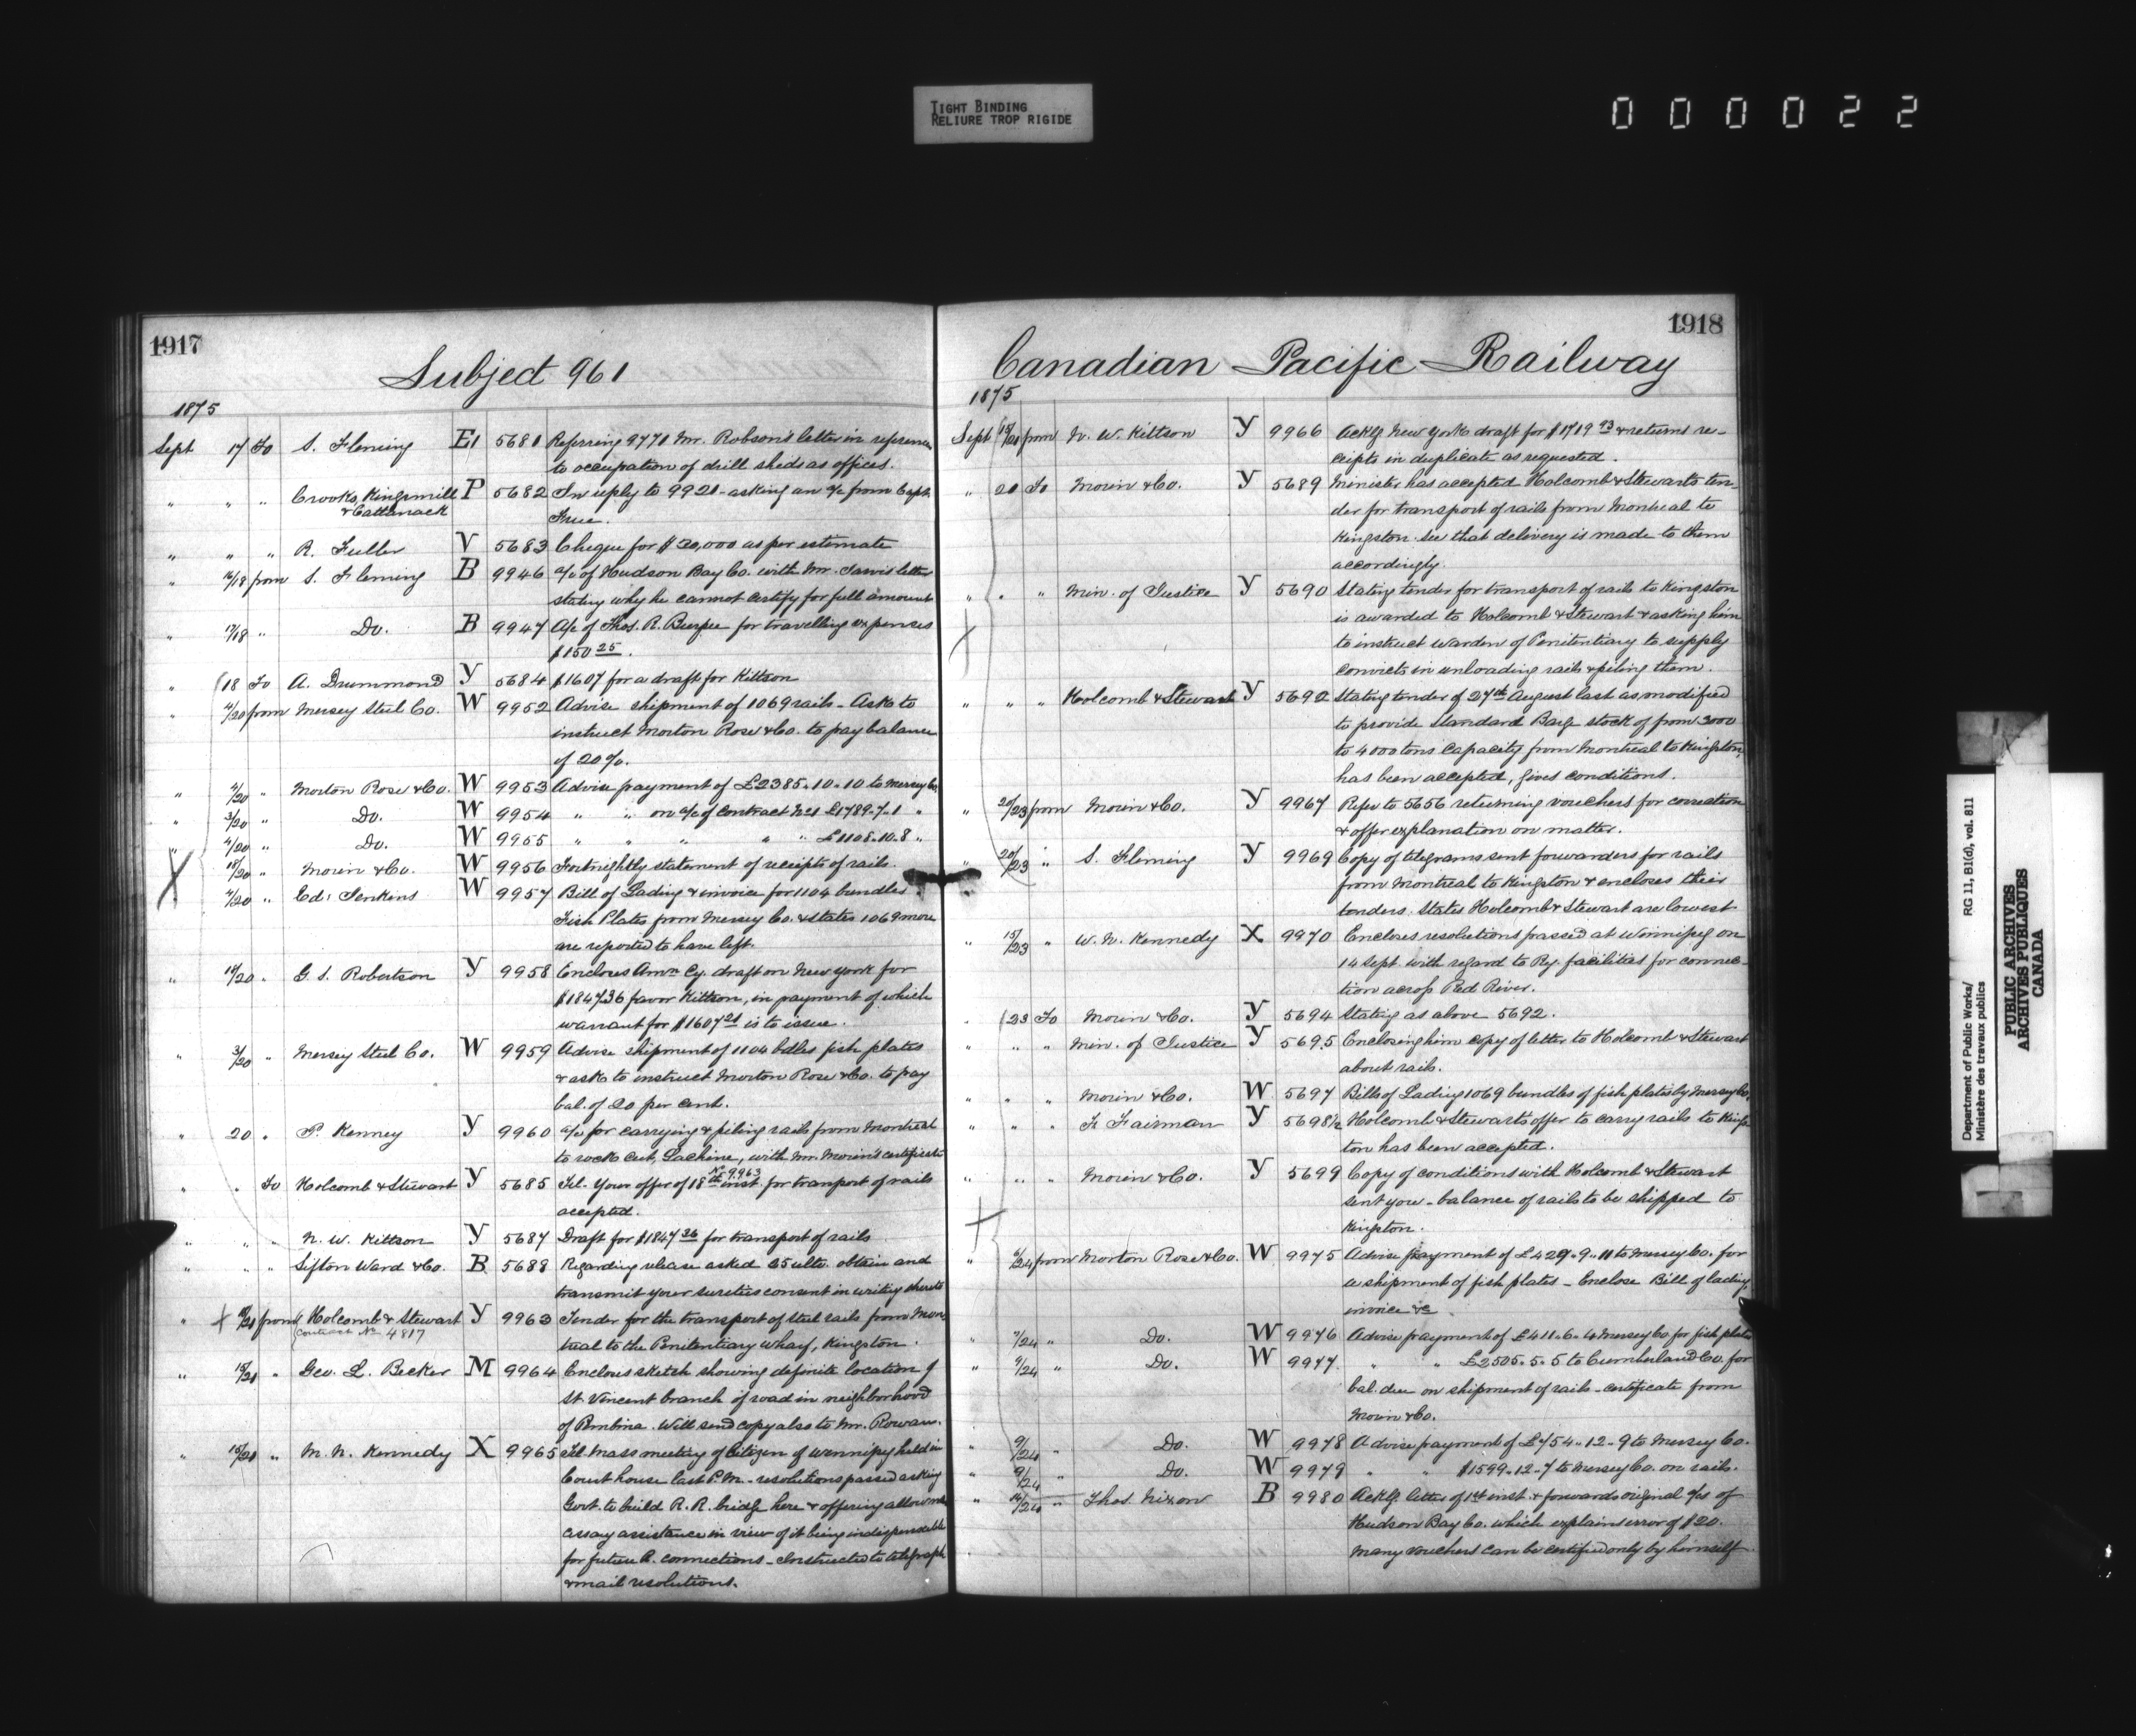 TIGHT BINDING
RELIURE TROP RIGIDE
000022
1917
Subject 961
1875
Sept 17 To S. Fleming E1 5681 Referring 9771 Mr. Robson's letter in reference
to occupation of drill sheds as offices.
" " " Crooks, Kingsmill P 5682 In reply to 9921 - asking an a/c from Capt.
& Cattanack
" " " R. Fuller V 5683 Cheque for $30,000 as per estimate
" 16/18 from S. Fleming B 9946 a/c of Hudson Bay Co. with Mr. Jarvis letter
stating why he cannot certify for full amount
" 17/18 " Do. B 9947 A/c of Thos. R. Burpee for travelling expenses
$150 25.
" 18 To A. Drummond Y 5684 $1607 for a draft for Kittson
" 4/20 from Mersey Steel Co. W 9952 Advise shipment of 1069 rails - Ask to
instruct Morton Rose & Co. to pay balance
of 20%.
" 4/20 " Morton Rose & Co. W 9953 Advise payment of £2385.10.10 to Mersey Co.
" 3/20 " Do. W 9954 " " on a/c of Contract No 1 £1789.7.1 "
" 4/20 " Do. W 9955 " " " " £1108.10.8 "
" 18/20 " Morin & Co. W 9956 Fortnightly statement of receipts of rails.
" 4/20 " Ed: Jenkins W 9957 Bill of Lading & invoice for 1104 bundles
Fish Plates from Mersey Co. & states 1069 more
are reported to have left.
" 18/20 " G. S. Robertson Y 9958 Encloses Amn Cy. draft on New York for
$1847.36 favor Kittson, in payment of which
warrant for $1607 21 is to issue.
" 3/20 " Mersey Steel Co. W 9959 Advise shipment of 1104 bdles fish plates
& ask to instruct Morton Rose & Co. to pay
bal. of 20 per cent.
" 20 " P. Kenney Y 9960 a/c for carrying & piling rails from Montreal
to rock cut, Lachine, with Mr. Morin's certificate
No 9963
" " To Holcomb & Stewart Y 5685 Tel. Your offer of 18th inst. for tranport of rails
accepted.
" " " N. W. Kittson Y 5687 Draft for $1847 36 for transport of rails
" " " Sifton Ward & Co. B 5688 Regarding release asked 25 ulto. obtain and
transmit your sureties consent in writing thereto
" 18/21 from Holcomb & Stewart Y 9963 Tender for the transport of steel rails from Mon-
Contract No 4817
treal to the Penitentiary wharf, Kingston.
" 15/21 " Geo. L. Becker M 9964 Encloses sketch showing definite location of
St. Vincent branch of road in neighborhood
of Pembina. Will send copy also to Mr. Rowan.
" 15/21 " M. N. Kennedy X 9965 Tel. mass meeting of Citizen of Winnipeg held in
Court house last P.M. - resolutions passed asking
Govt. to build R. R. bridge here & offering
assistance in view of it being indispensable
for future R. connections - Instructed to telegraph
& mail resolutions.
1918
Canadian Pacific Railway
1875
Sept 18/21 from N. W. Kittson Y 9966 Ackg. New York draft for $1719 43 & returns re-
ceipts in duplicate as requested.
" 20 To Morin & Co. Y 5689 Minister has accepted Holcomb & Stewarts ten-
der for transport of rails from Montreal to
Kingston. See that delivery is made to them
accordingly.
" " " Min. of Justice Y 5690 Stating tender for transport of rails to Kingston
is awarded to Holcomb & Stewart & asking him
to instruct Warden of Penitentiary to supply
convicts in unloading rails & piling them.
" " " Holcomb & Stewart Y 5692 Stating tender of 27th August last as modified
to provide Standard Barge stock of from 3000
to 4000 tons capacity from Montreal to Kingston,
has been accepted, gives conditions.
" 20/23 from Morin & Co. Y 9967 Refer to 5656 returning vouchers for correction
& offer explanation on matter.
" 20/23 " S. Fleming Y 9969 Copy of telegrams sent forwarders for rails
from Montreal to Kingston & encloses their
tenders. States Holcomb & Stewart are lowest
" 15/23 " W. N. Kennedy X 9970 Encloses resolutions passed at Winnipeg on
14 Sept. with regard to Ry. facilities for connec-
tion across Red River.
" 23 To Morin & Co. Y 5694 Stating as above 5692.
" " " Min. of Justice Y 5695 Enclosing him copy of letter to Holcomb & Stewart
about rails.
" " " Morin & Co. W 5697 Bills of Lading 1069 bundles of fish plates by Mersey Co.
" " " F. Fairman Y 5698½ Holcomb & Stewart's offer to carry rails to Kings-
ton has been accepted.
" " " Morin & Co. Y 5699 Copy of conditions with Holcomb & Stewart
sent you - balance of rails to be shipped to
Kingston.
" 6/24 from Morton Rose & Co. W 9975 Advise payment of £429.9.11 to Mersey Co. for
a shipment of fish plates - Enclose Bill of lading,
invoice &c.
" 7/24 " Do. W 9976 Advise payment of £411.6.4 Mersey Co for fish plates
" 9/24 " Do. W 9977 " " £2505.5.5 to Cumberland Co. for
bal. due on shipment of rails - certificate from
Morin & Co.
" 9/24 " Do. W 9978 Advise payment of £754.12.9 to Mersey Co.
" 9/24 " Do. W 9979 " " $1599.12.7 to Mersey Co. on rails.
" 14/24 " Thos. Nixon B 9980 Ackg. letter of 1st inst. & forwards original a/cs of
Hudson Bay Co. which explains error of $20.
Many vouchers can be certified only by himself
Department of Public Works/
Ministère des travaux publics
RG 11, B1(d), vol. 811
PUBLIC ARCHIVES
ARCHIVES PUBLIQUES
CANADA